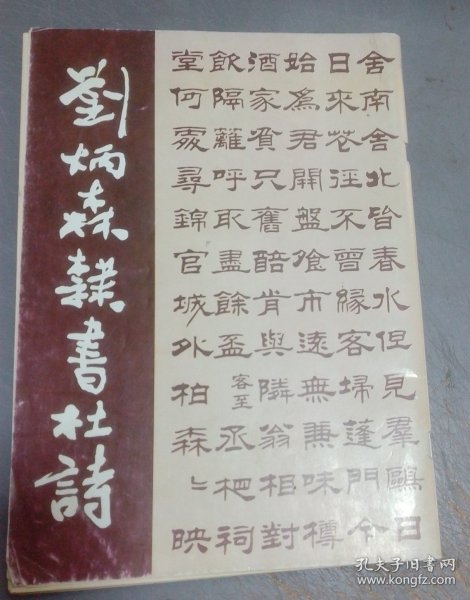 劉炳森隸書杜詩
舍南舍北皆春水但見羣鷗日
日來花徑不曾緣客埽蓬門今
始爲君開盤飧市遠無兼味樽
酒家貧只舊醅肯與隣翁相對
飲隔籬呼取盡餘盃 客至 丞相祠
堂何處尋錦官城外柏森〻映
孔夫子旧书网
www.kongfz.com